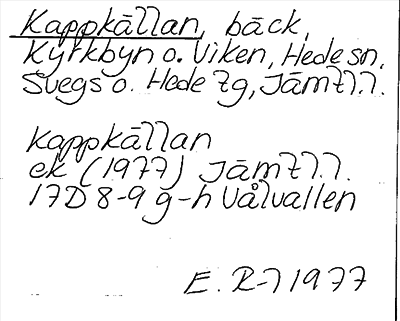 Kappkällan, bäck,
Kyrkbyn o. Viken, Hede sn,
Svegs o. Hede tg, Jämtl.l.
Kappkällan
ek (1977) Jämtl.l.
17D 8-9 g-h Vålvallen
E. R-l 1977